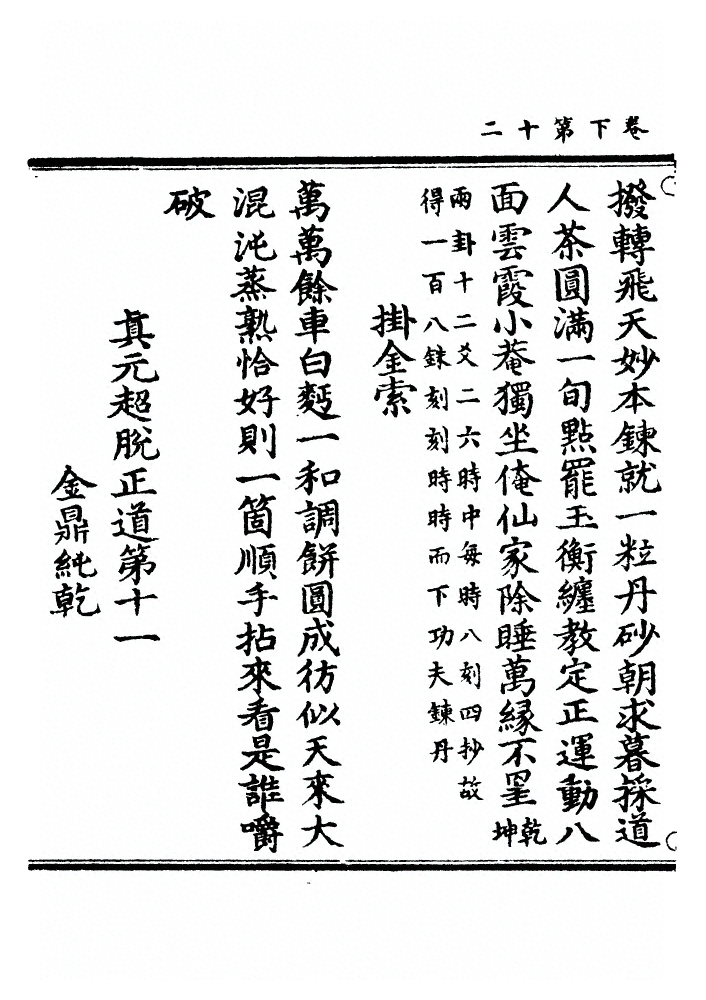 卷下第十二
撥轉飛天妙本鍊就一粒丹砂朝求暮採道
人茶圓滿一旬點罷玉衡纏教定正運動八
面雲霞小菴獨坐俺仙家除睡萬緣不罣乾坤
兩卦十二爻二六時中每時八刻四抄故
得一百八銖刻刻時時而下功夫鍊丹
掛金索
萬萬餘車白麪一和調餅圓成彷似天來大
混沌蒸熟恰好則一箇順手拈來看是誰嚼
破
真元超脫正道第十一
金鼎純乾